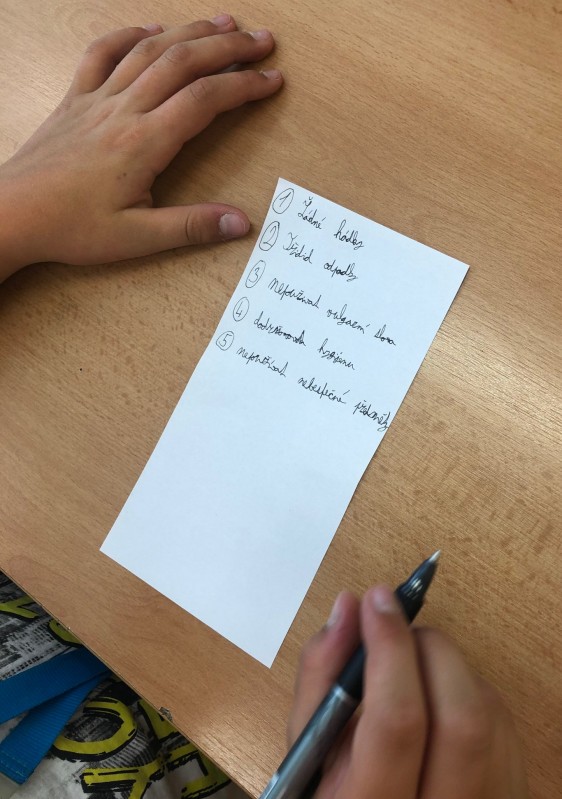 ① Žádné hádky
② Třídid odpadky
③ nepoužívat vulgární slova
④ dodržovat hygienu
⑤ nepoužívat nebespečné předměty